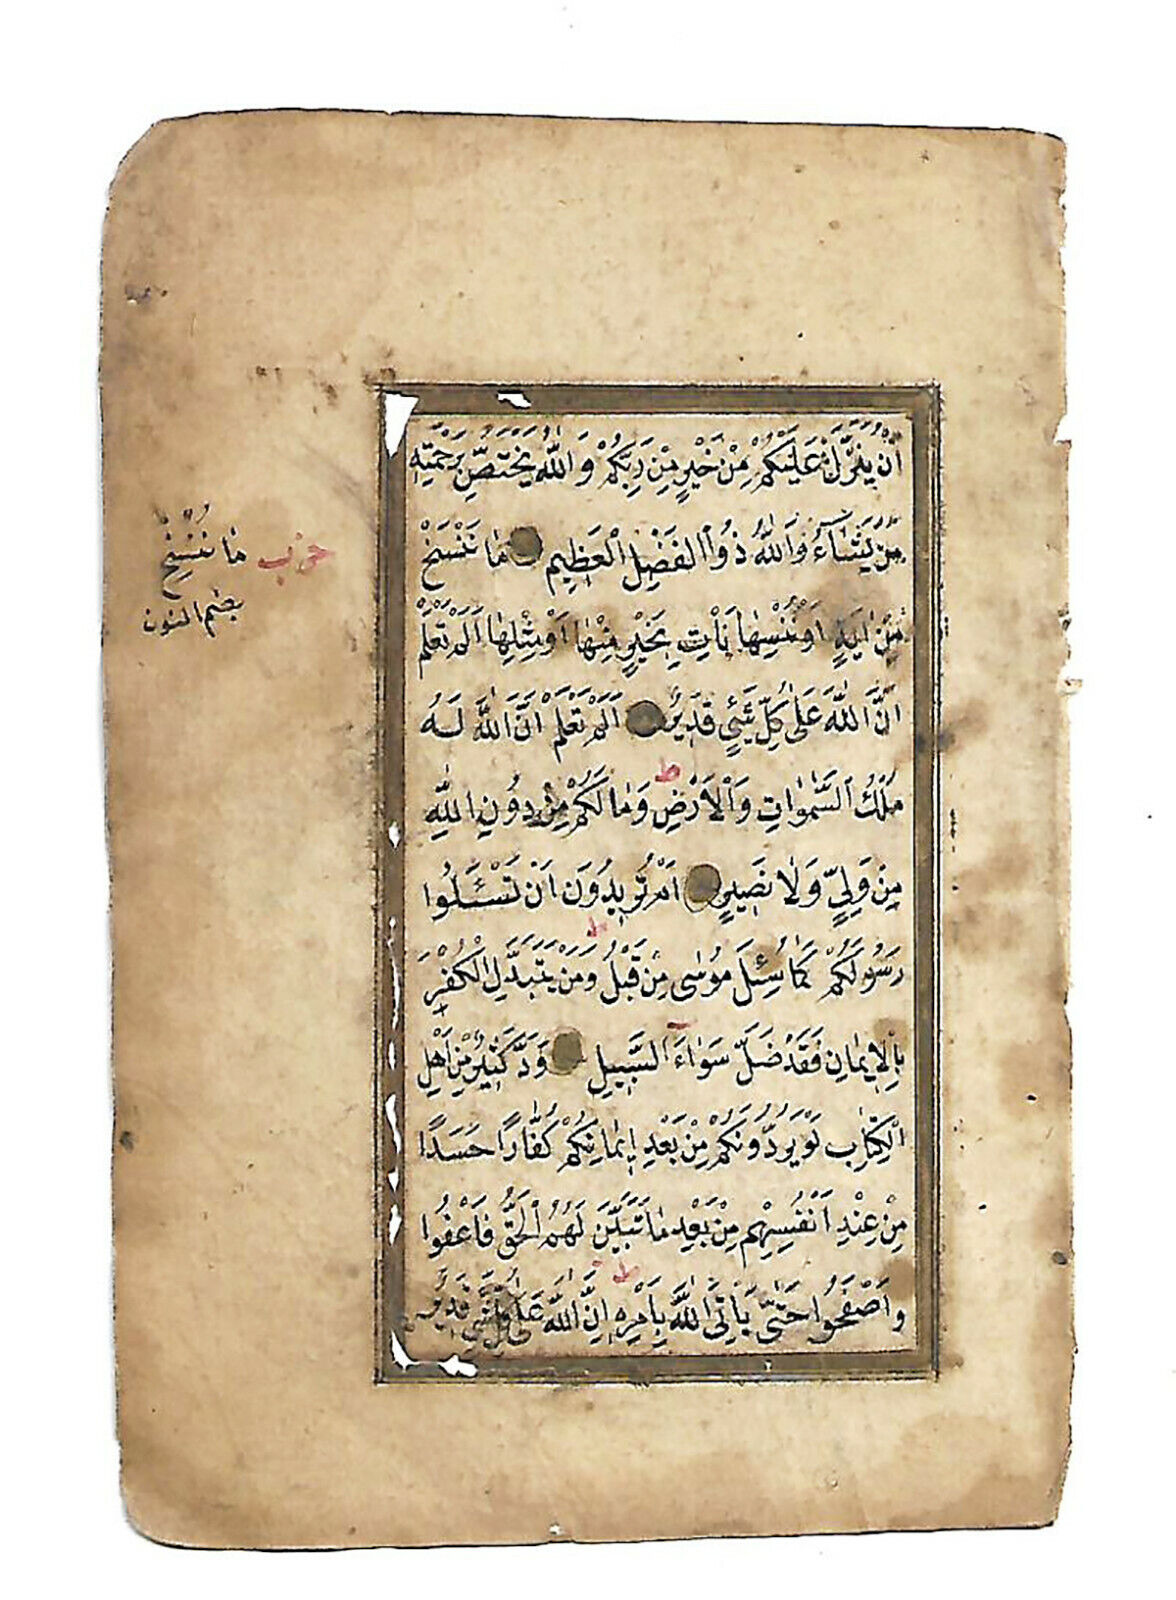 اَنْ يُنَزَّلَ عَلَيْكُمْ مِنْ خَيْرٍ مِنْ رَبِّكُمْ وَاللّٰهُ يَخْتَصُّ بِرَحْمَتِهٖ
مَنْ يَشَاءُ وَاللّٰهُ ذُوالْفَضْلِ الْعَظِيمِ مَا نَنْسَخْ
مِنْ اٰيَةٍ اَوْ نُنْسِهَا نَأْتِ بِخَيْرٍ مِنْهَا اَوْ مِثْلِهَا اَلَمْ تَعْلَمْ
اَنَّ اللّٰهَ عَلٰى كُلِّ شَيْءٍ قَدِيرٌ اَلَمْ تَعْلَمْ اَنَّ اللّٰهَ لَهُ
ط
مُلْكُ السَّمٰوَاتِ وَالْاَرْضِ وَمَا لَكُمْ مِنْ دُونِ اللّٰهِ
مِنْ وَلِيٍّ وَلَا نَصِيرٍ اَمْ تُرِيدُونَ اَنْ تَسْـَٔلُوا
ط
رَسُولَكُمْ كَمَا سُئِلَ مُوسٰى مِنْ قَبْلُ وَمَنْ يَتَبَدَّلِ الْكُفْرَ
بِالْاِيمَانِ فَقَدْ ضَلَّ سَوَاءَ السَّبِيلِ وَدَّ كَثِيرٌ مِنْ اَهْلِ
الْكِتَابِ لَوْ يَرُدُّونَكُمْ مِنْ بَعْدِ اِيمَانِكُمْ كُفَّارًا حَسَدًا
مِنْ عِنْدِ اَنْفُسِهِمْ مِنْ بَعْدِ مَا تَبَيَّنَ لَهُمُ الْحَقُّ فَاعْفُوا
ط
وَاصْفَحُوا حَتّٰى يَأْتِىَ اللّٰهُ بِاَمْرِهٖ اِنَّ اللّٰهَ عَلٰى كُلِّ شَيْءٍ قَدِيرٌ
حزب مَا نُنْسِخْ
بضم النون